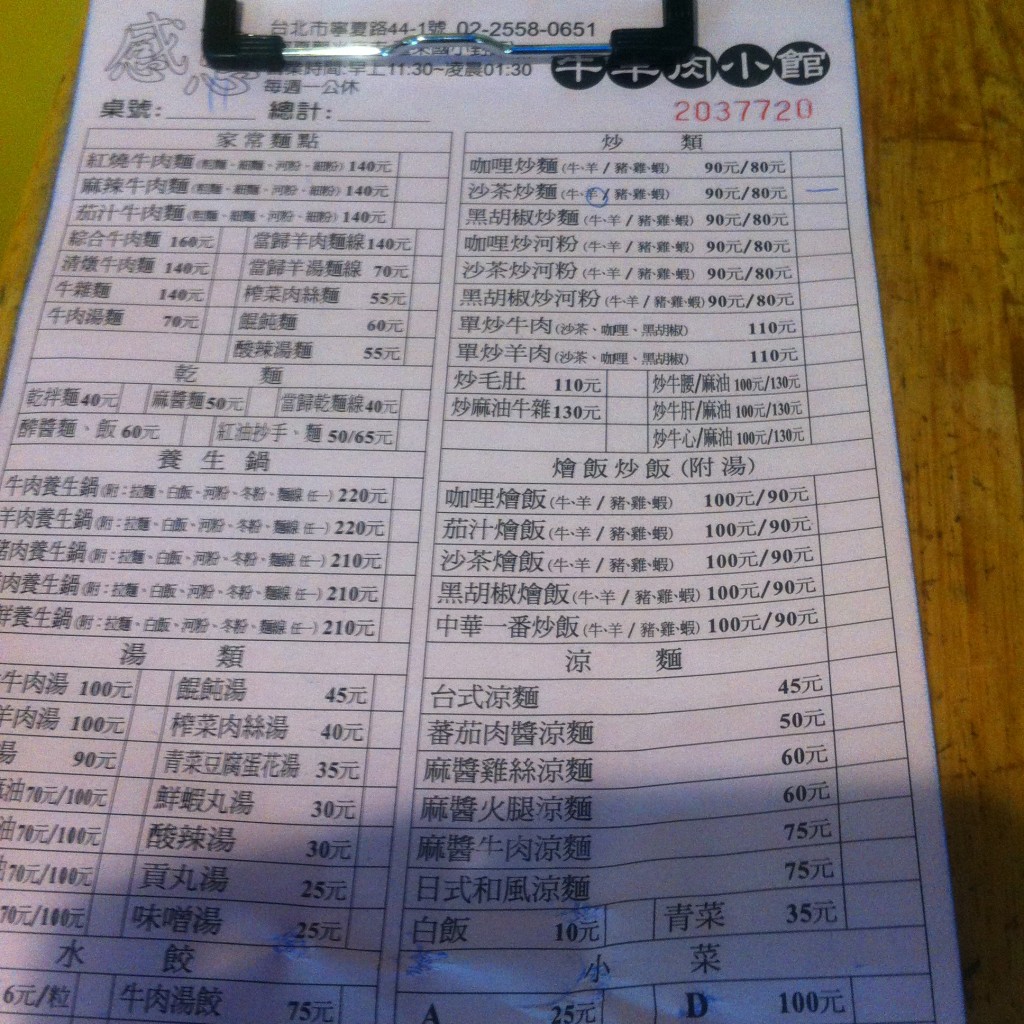 台北市寧夏路44-1號 02-2558-0651
時間:早上11:30~凌晨01:30
每週一公休
感恩
牛羊肉小館
桌號: 總計:
2037720
家常麵點
紅燒牛肉麵(粗麵、細麵、河粉、細粉) 140元
麻辣牛肉麵(粗麵、細麵、河粉、細粉) 140元
茄汁牛肉麵(粗麵、細麵、河粉、細粉) 140元
綜合牛肉麵 160元 當歸羊肉麵線140元
清燉牛肉麵 140元 當歸羊湯麵線 70元
牛雜麵 140元 榨菜肉絲麵 55元
牛肉湯麵 70元 餛飩麵 60元
酸辣湯麵 55元
乾 麵
乾拌麵40元 麻醬麵50元 當歸乾麵線40元
醡醬麵、飯 60元 紅油抄手、麵 50/65元
養生鍋
牛肉養生鍋(附:拉麵、白飯、河粉、冬粉、麵線 任一) 220元
羊肉養生鍋(附:拉麵、白飯、河粉、冬粉、麵線 任一) 220元
豬肉養生鍋(附:拉麵、白飯、河粉、冬粉、麵線 任一) 210元
肉養生鍋(附:拉麵、白飯、河粉、冬粉、麵線 任一) 210元
鮮養生鍋(附:拉麵、白飯、河粉、冬粉、麵線 任一) 210元
湯 類
牛肉湯 100元 餛飩湯 45元
羊肉湯 100元 榨菜肉絲湯 40元
湯 90元 青菜豆腐蛋花湯 35元
麻油70元/100元 鮮蝦丸湯 30元
油70元/100元 酸辣湯 30元
油70元/100元 貢丸湯 25元
70元/100元 味噌湯 25元
水 餃
6元/粒 牛肉湯餃 75元
炒 類
咖哩炒麵(牛、羊 / 豬、雞、蝦) 90元/80元
沙茶炒麵(牛、羊 / 豬、雞、蝦) 90元/80元
黑胡椒炒麵(牛、羊 / 豬、雞、蝦) 90元/80元
咖哩炒河粉(牛、羊 / 豬、雞、蝦) 90元/80元
沙茶炒河粉(牛、羊 / 豬、雞、蝦) 90元/80元
黑胡椒炒河粉(牛、羊 / 豬、雞、蝦) 90元/80元
單炒牛肉(沙茶、咖哩、黑胡椒) 110元
單炒羊肉(沙茶、咖哩、黑胡椒) 110元
炒毛肚 110元 炒牛腰/麻油 100元/130元
炒麻油牛雜130元 炒牛肝/麻油 100元/130元
炒牛心/麻油 100元/130元
燴飯炒飯(附湯)
咖哩燴飯(牛、羊 / 豬、雞、蝦) 100元/90元
茄汁燴飯(牛、羊 / 豬、雞、蝦) 100元/90元
沙茶燴飯(牛、羊 / 豬、雞、蝦) 100元/90元
黑胡椒燴飯(牛、羊 / 豬、雞、蝦) 100元/90元
中華一番炒飯(牛、羊 / 豬、雞、蝦) 100元/90元
涼 麵
台式涼麵 45元
蕃茄肉醬涼麵 50元
麻醬雞絲涼麵 60元
麻醬火腿涼麵 60元
麻醬牛肉涼麵 75元
日式和風涼麵 75元
白飯 10元 青菜 35元
小 菜
A 25元 D 100元